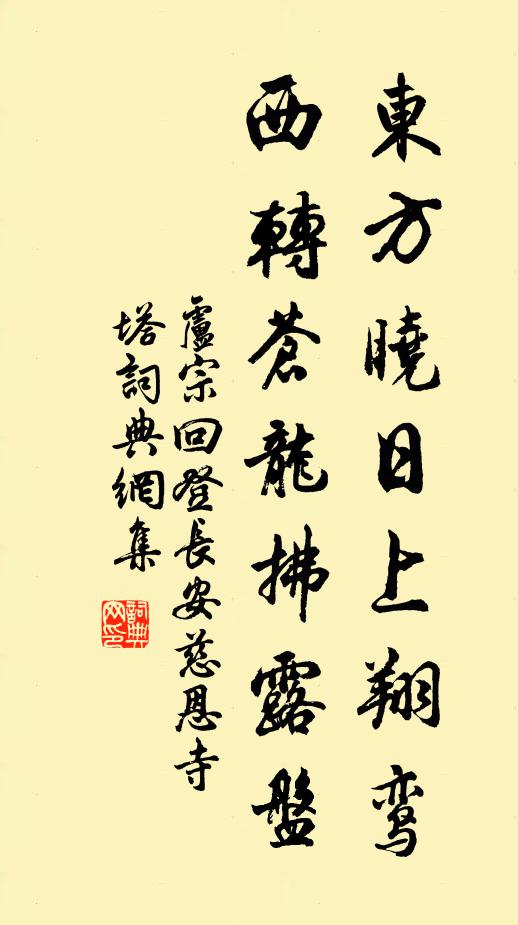 東方曉日上翔鸾
西轉蒼龍拂露盤
盧宗回登長安慈恩寺
塔詞典網集
詞典网印